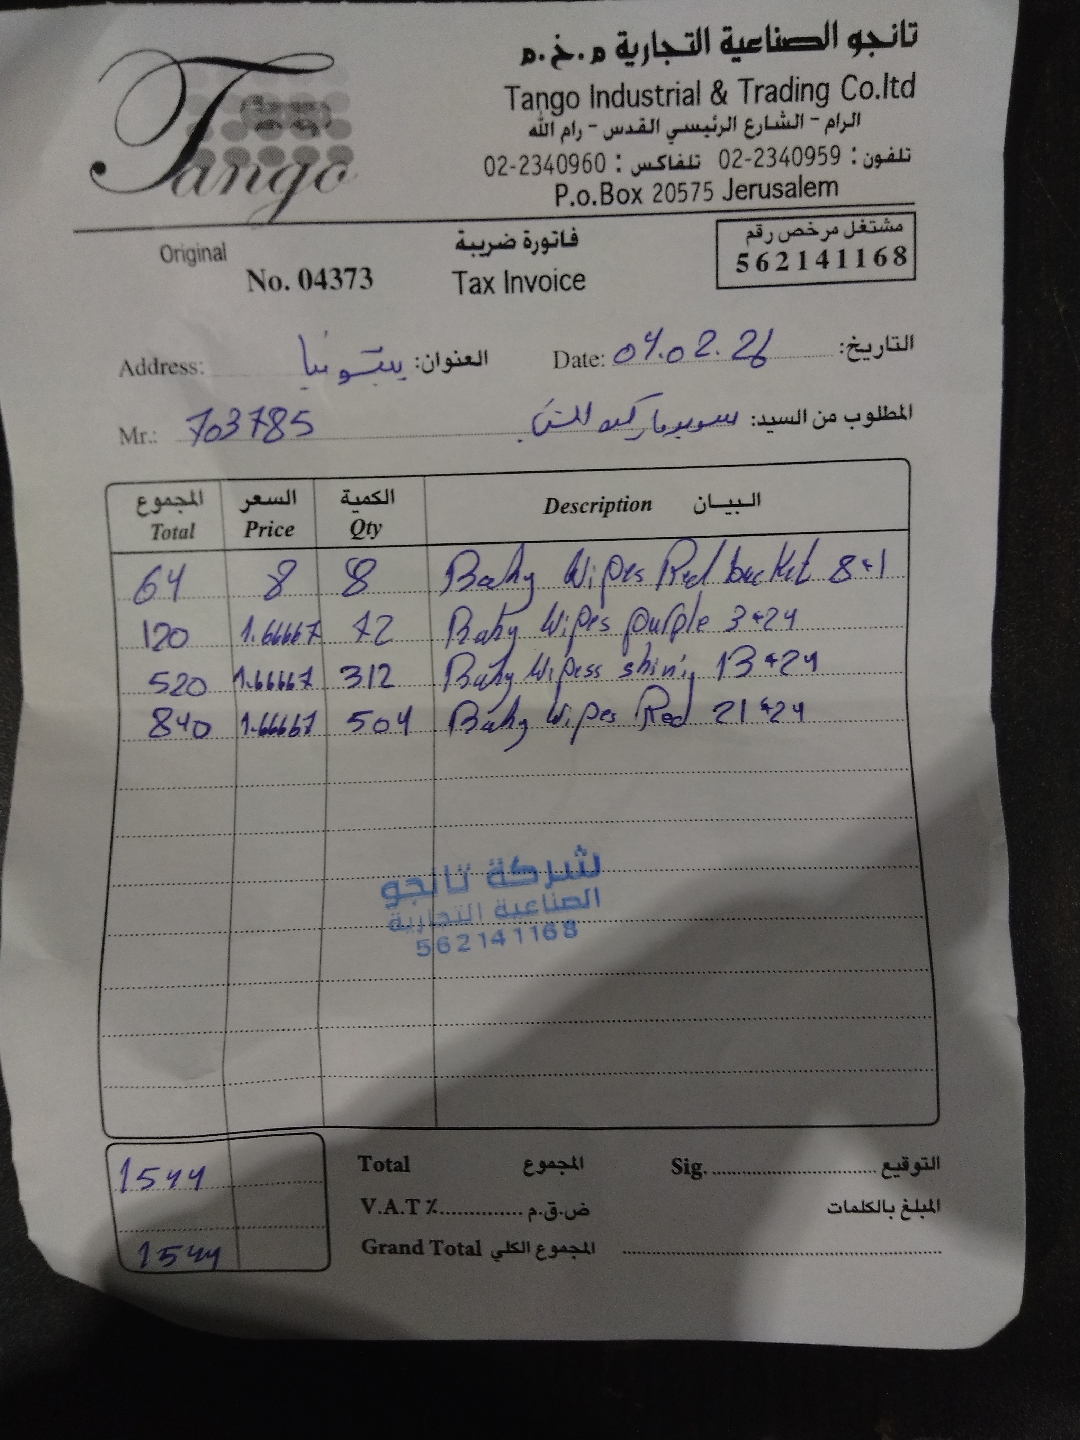 تانجو الصناعية التجارية م.خ.م
Tango
Tango Industrial & Trading Co.ltd
الرام - الشارع الرئيسي القدس - رام الله
تلفون : 02-2340959 تلفاكس : 02-2340960
P.o.Box 20575 Jerusalem
Original
No. 04373
فاتورة ضريبة
Tax Invoice
مشتغل مرخص رقم
562141168
Address: بيتونيا العنوان:
Date: 04.02.26 التاريخ:
Mr.: 703785 سوبرماركت المطلوب من السيد:
المجموع السعر الكمية البيـــان
Total Price Qty Description
64 8 8 Baby Wipes Red bucket 8*1
120 1.66667 72 Baby Wipes purple 3*24
520 1.66667 312 Baby Wipess shini 13*24
840 1.66667 504 Baby Wipes Red 21*24
شركة تانجو
الصناعية التجارية
562141168
1544 Total المجموع Sig. التوقيع
V.A.T ٪ ض.ق.م المبلغ بالكلمات
1544 Grand Total المجموع الكلي